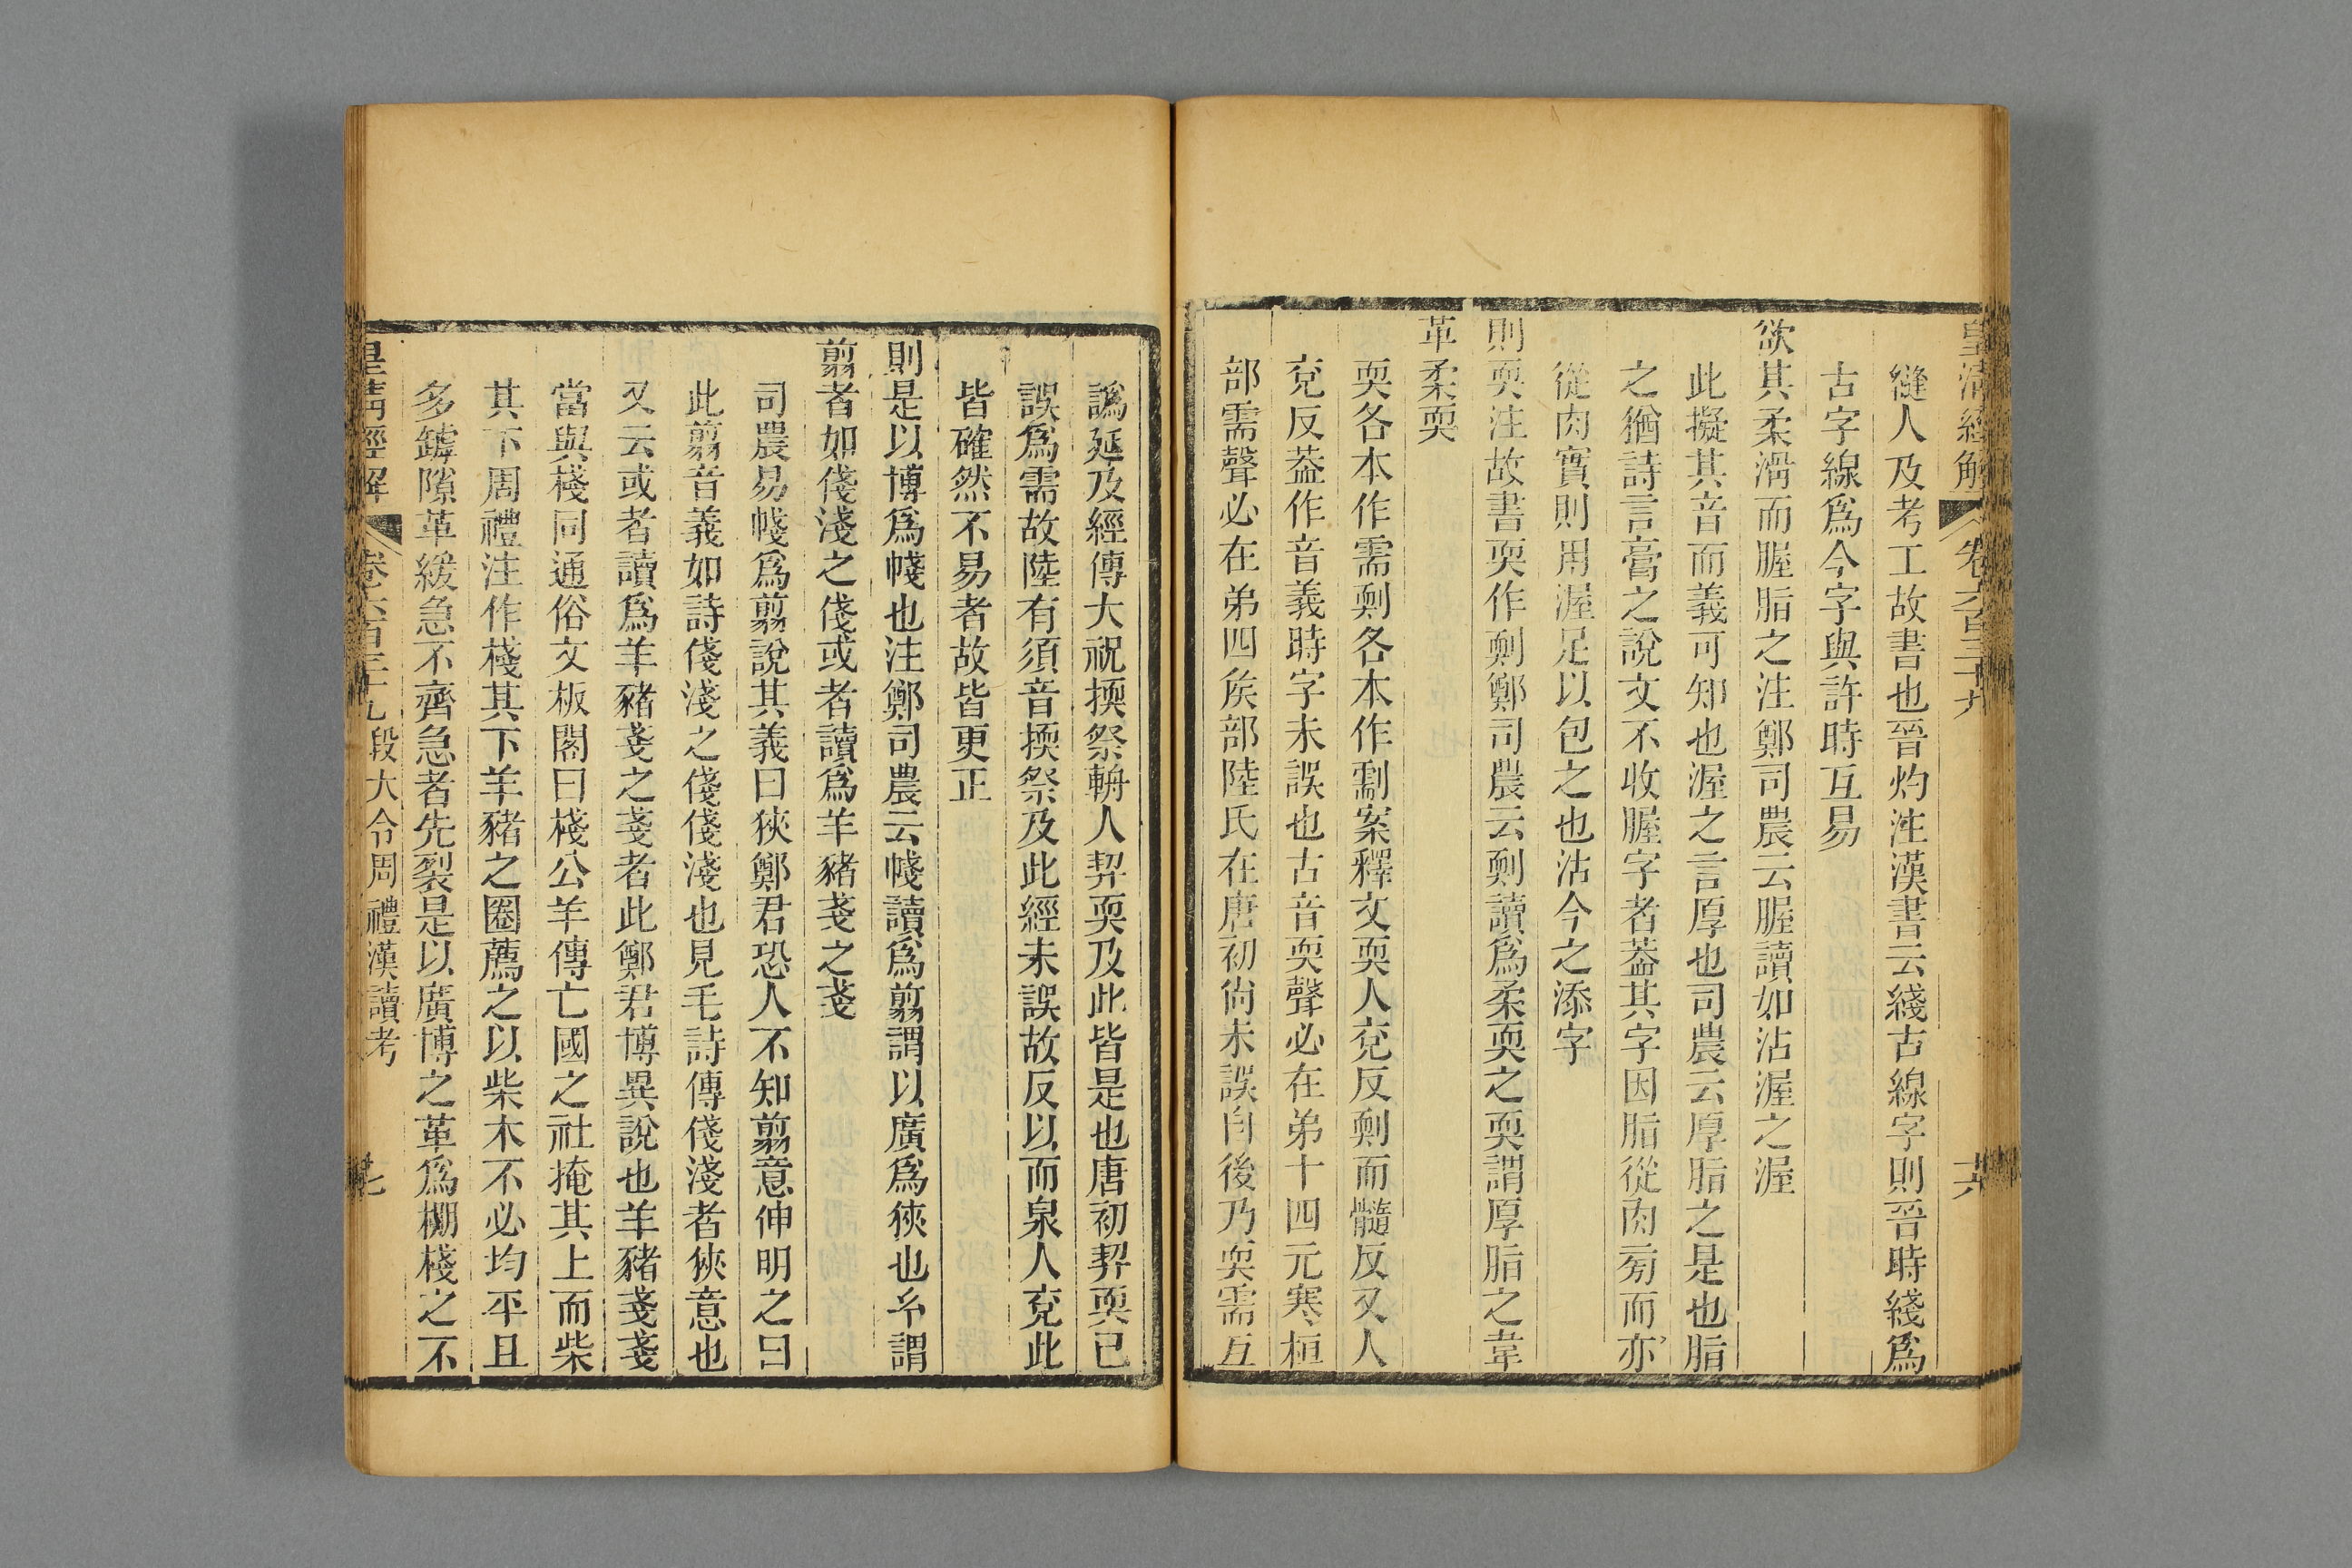 皇清經解 卷六百三十九 十六
縫人及考工故書也晉灼注漢書云綫古線字則晉時綫爲
古字線爲今字與許時互易
欲其柔滑而腛脂之注鄭司農云腛讀如沾渥之渥
此擬其音而義可知也渥之言厚也司農云厚脂之是也脂
之猶詩言膏之說文不收腛字者葢其字因脂從肉㫄而亦
從肉實則用渥足以包之也沾今之添字
則耎注故書耎作㓴鄭司農云㓴讀爲柔耎之耎謂厚脂之韋
革柔耎
耎各本作需㓴各本作劀案釋文耎人兗反㓴而髓反又人
兗反葢作音義時字未誤也古音耎聲必在弟十四元寒桓
部需聲必在弟四矦部陸氏在唐初尙未誤自後乃耎需互
譌延及經傳大祝擩祭輈人契耎及此皆是也唐初契耎已
誤爲需故陸有須音擩祭及此經未誤故反以而泉人兗此
皆確然不易者故皆更正
則是以博爲帴也注鄭司農云帴讀爲翦謂以廣爲狹也𠃔謂
翦者如俴淺之俴或者讀爲羊豬戔之戔
司農易帴爲翦說其義曰狹鄭君恐人不知翦意伸明之曰
此翦音義如詩俴淺之俴俴淺也見毛詩傳俴淺者狹意也
又云或者讀爲羊豬戔之戔者此鄭君博異說也羊豬戔戔
當與棧同通俗文板閣曰棧公羊傳亡國之社掩其上而柴
其下周禮注作棧其下羊豬之圈薦之以柴木不必均平且
多罅隙革緩急不齊急者先裂是以廣博之革爲棚棧之不
皇清經解 卷六百三十九 段大令周禮漢讀考 七